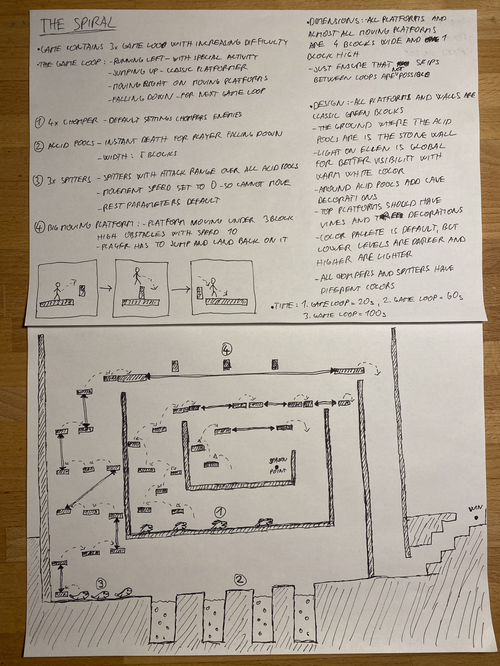 THE SPIRAL
• GAME CONTAINS 3x GAME LOOP WITH INCREASING DIFFICULTY
• THE GAME LOOP: - RUNNING LEFT - WITH SPECIAL ACTIVITY
- JUMPING UP - CLASSIC PLATFORMER
- MOVING RIGHT ON MOVING PLATFORMS
- FALLING DOWN - FOR NEXT GAME LOOP
① 4x CHOMPER - DEFAULT SETTINGS CHOMPERS ENEMIES
② ACID POOLS - INSTANT DEATH FOR PLAYER FALLING DOWN
- WIDTH: 5 BLOCKS
③ 3x SPITTERS - SPITTERS WITH ATTACK RANGE OVER ALL ACID POOLS
- MOVEMENT SPEED SET TO 0 - SO CANNOT MOVE
- REST PARAMETERS DEFAULT
④ BIG MOVING PLATFORM: - PLATFORM MOVING UNDER 3 BLOCK
HIGH OBSTACLES WITH SPEED 10
- PLAYER HAS TO JUMP AND LAND BACK ON IT
• DIMENSIONS: - ALL PLATFORMS AND
ALMOST ALL MOVING PLATFORMS
ARE 4 BLOCKS WIDE AND 1
BLOCK HIGH
- JUST ENSURE THAT SKIPS
BETWEEN LOOPS ARE NOT POSSIBLE
• DESIGN: - ALL PLATFORMS AND WALLS ARE
CLASSIC GREEN BLOCKS
- THE GROUND WHERE THE ACID
POOLS ARE IS THE STONE WALL
- LIGHT ON ELLEN IS GLOBAL
FOR BETTER VISIBILITY WITH
WARM WHITE COLOR
- AROUND ACID POOLS ADD CAVE
DECORATIONS
- TOP PLATFORMS SHOULD HAVE
VINES AND DECORATIONS
- COLOR PALLETE IS DEFAULT, BUT
LOWER LEVELS ARE DARKER AND
HIGHER ARE LIGHTER
- ALL CHOMPERS AND SPITTERS HAVE
DIFFERENT COLORS
• TIME: 1. GAME LOOP = 20s, 2. GAME LOOP = 60s
3. GAME LOOP = 100s
④
SPAWN
POINT
①
WIN
③
②